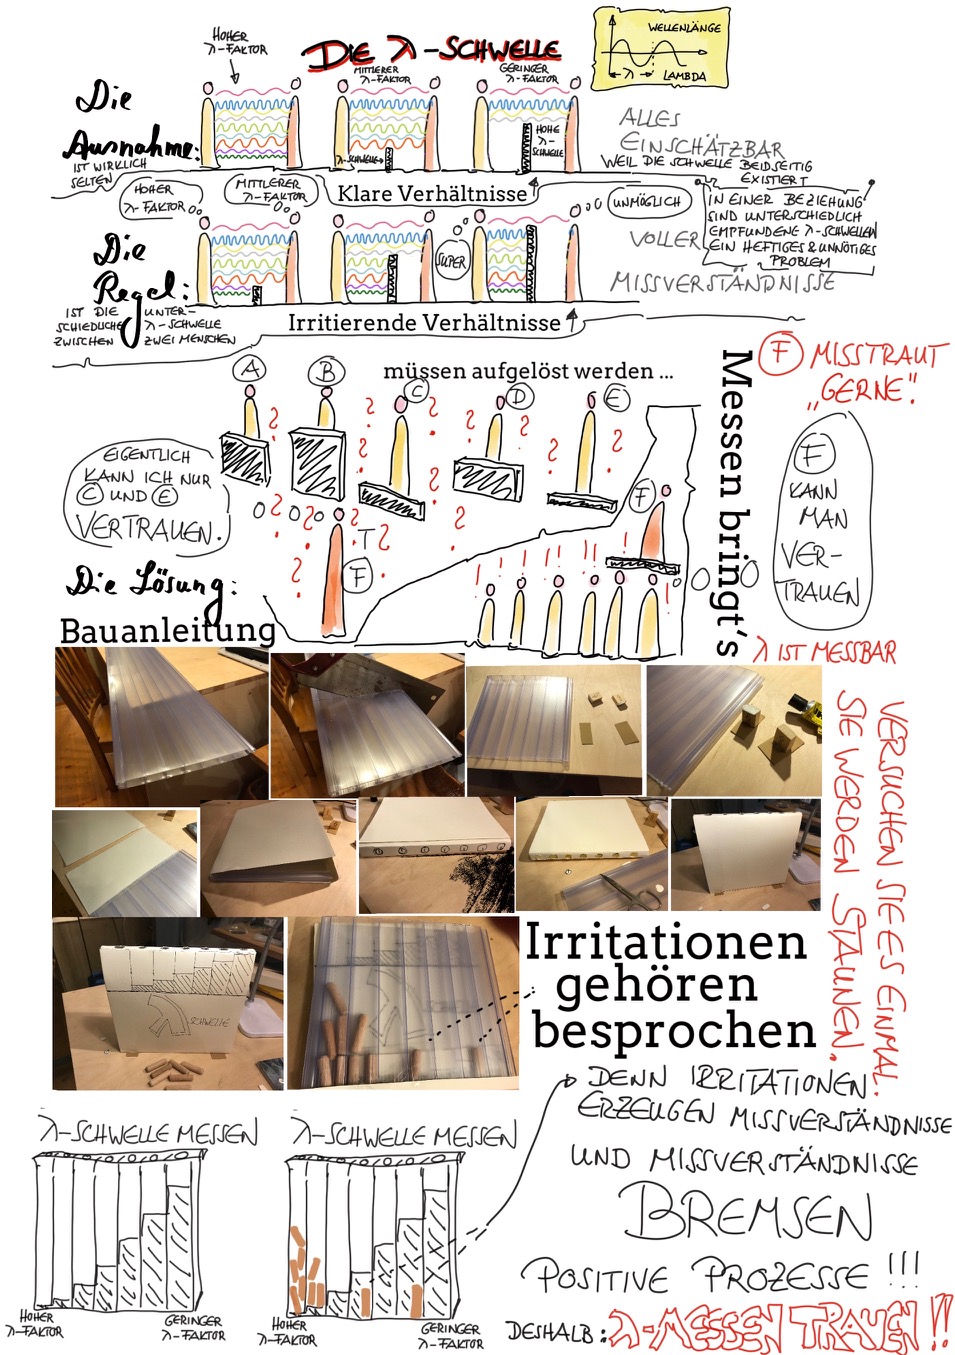 HOHER
λ-FAKTOR
DIE λ-SCHWELLE
WELLENLÄNGE
λ
LAMBDA
MITTLERER
λ-FAKTOR
GERINGER
λ-FAKTOR
Die
Ausnahme:
IST WIRKLICH
SELTEN
λ-SCHWELLE
HOHE
λ-
SCHWELLE
ALLES
EINSCHÄTZBAR
WEIL DIE SCHWELLE BEIDSEITIG
EXISTIERT
Klare Verhältnisse
HOHER
λ-FAKTOR
MITTLERER
λ-FAKTOR
UNMÖGLICH
IN EINER BEZIEHUNG
SIND UNTERSCHIEDLICH
EMPFUNDENE λ-SCHWELLEN
EIN HEFTIGES & UNNÖTIGES
PROBLEM
Die
Regel:
IST DIE UNTER-
SCHIEDLICHE λ-SCHWELLE
ZWISCHEN ZWEI MENSCHEN
SUPER
VOLLER
MISSVERSTÄNDNISSE
Irritierende Verhältnisse
müssen aufgelöst werden ...
A
B
C
D
E
EIGENTLICH
KANN ICH NUR
C UND E
VERTRAUEN.
F
F
Messen bringt's
F MISSTRAUT
„GERNE".
F
KANN
MAN
VER-
TRAUEN
λ IST MESSBAR
Die Lösung:
Bauanleitung
VERSUCHEN SIE ES EINMAL.
SIE WERDEN STAUNEN.
SCHWELLE
Irritationen
gehören
besprochen
DENN IRRITATIONEN
ERZEUGEN MISSVERSTÄNDNISSE
UND MISSVERSTÄNDNISSE
BREMSEN
POSITIVE PROZESSE!!!
DESHALB: λ-MESSEN TRAUEN!!
λ-SCHWELLE MESSEN
HOHER
λ-FAKTOR
GERINGER
λ-FAKTOR
λ-SCHWELLE MESSEN
HOHER
λ-FAKTOR
GERINGER
λ-FAKTOR